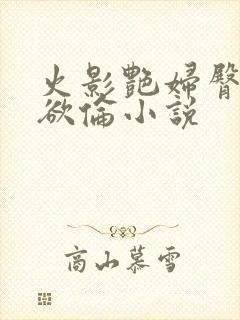 火影艷婦臀
欲倫小説
高山慕雪